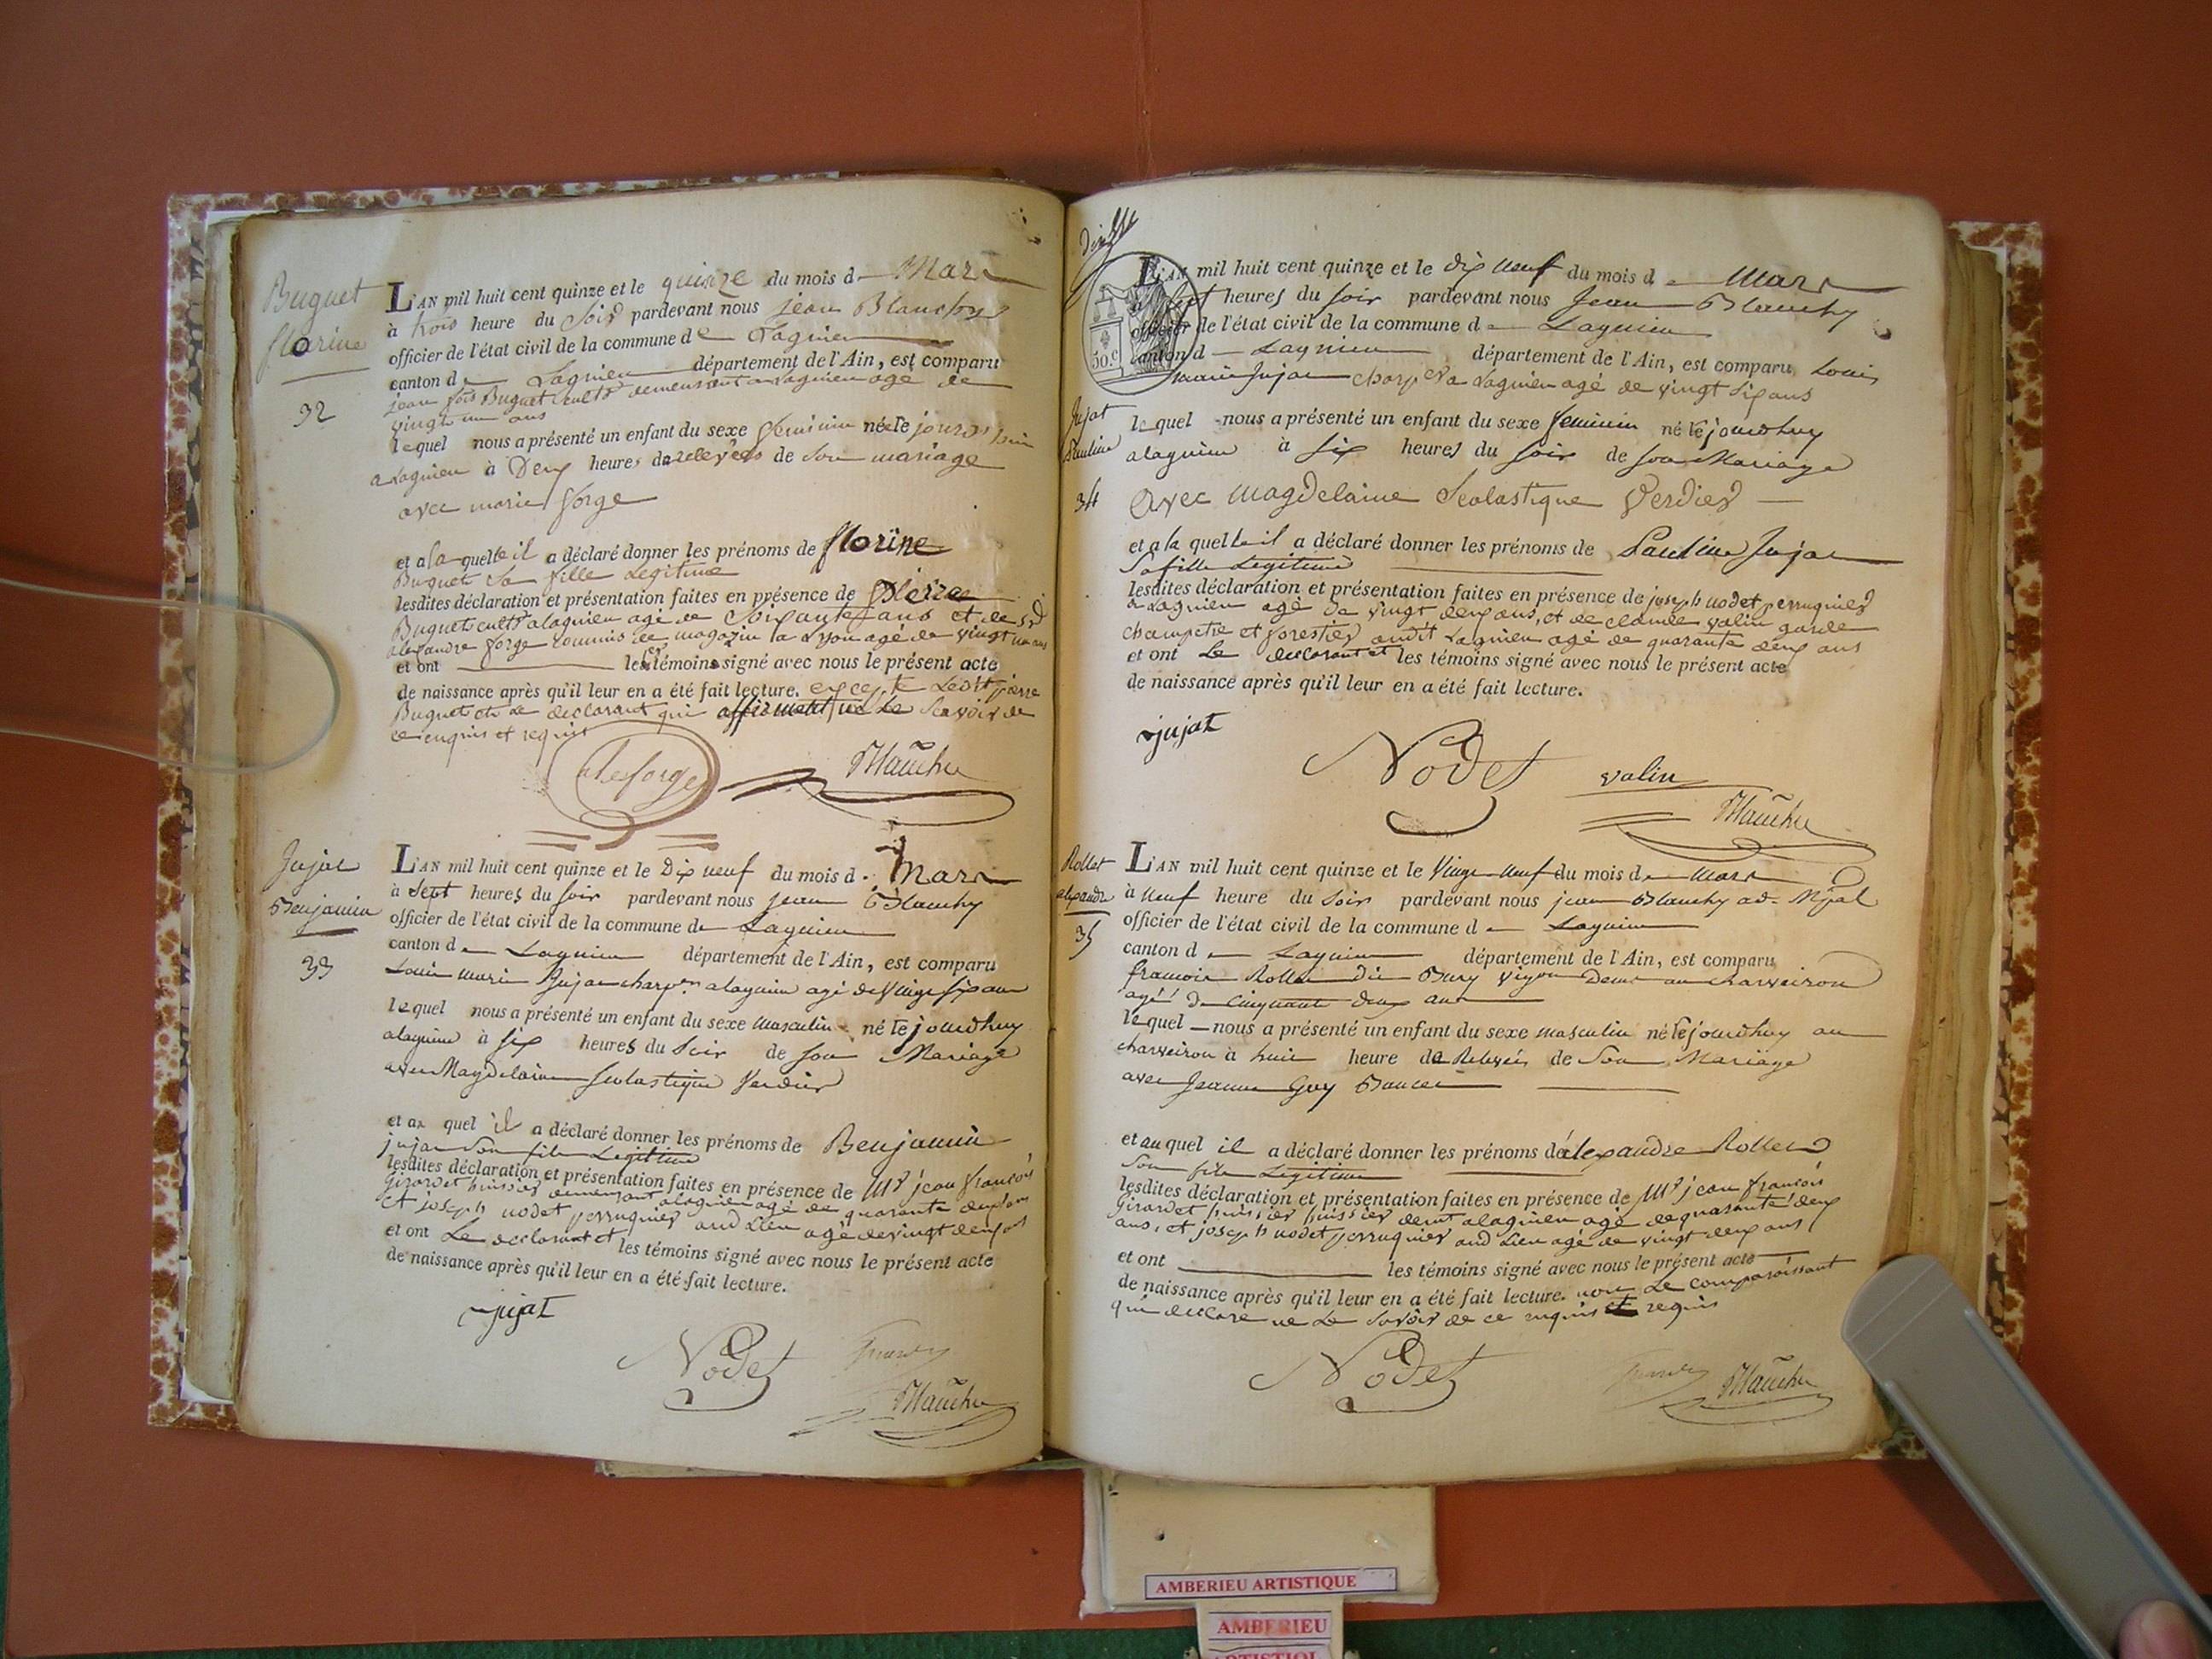 Buguet
florine
32
L'AN mil huit cent quinze et le quinze du mois de Mars
à trois heure du Soir pardevant nous jean Blanchy
officier de l'état civil de la commune de Lagnieu
canton de Lagnieu département de l'Ain, est comparu
jean fois Buguet cultr demeurant a Lagnieu agé de
vingt un ans
lequel nous a présenté un enfant du sexe feminin née le jourdhui
a Lagnieu à Deux heures de relevées de Son mariage
avec marie forge
et a la quelle il a déclaré donner les prénoms de florine
Buguet Sa fille Legitime
lesdites déclaration et présentation faites en présence de pierre
Buguet cultr a lagnieu agé de Soixante ans et de Sr
alexandre forge commis de magazin a Lyon agé de vingt un ans
et ont les témoins signé avec nous le présent acte
de naissance après qu'il leur en a été fait lecture. excepté Ledit pierre
Buguet et Le declarant qui Scavoir de
ce enquis et requis
alexforge
Blanchy
Jujat
Benjamin
33
L'AN mil huit cent quinze et le Dix neuf du mois de Mars
à Sept heures du soir pardevant nous jean Blanchy
officier de l'état civil de la commune de Lagnieu
canton de Lagnieu département de l'Ain, est comparu
Louis marie Jujat charpr a lagnieu agé de Vingt six ans
lequel nous a présenté un enfant du sexe masculin né le jourdhuy
a lagnieu à six heures du Soir de son Mariage
avec Magdelaine scolastique Verdier
et au quel il a déclaré donner les prénoms de Benjamin
jujat Son fils Legitime
lesdites déclaration et présentation faites en présence de Mr jean françois
Girardet huissier demeurant a lagnieu agé de quarante deux ans
et joseph nodet perruquier aud Lieu agé de vingt deux ans
et ont Le declarant et les témoins signé avec nous le présent acte
de naissance après qu'il leur en a été fait lecture.
jujat
Nodet
Blanchy
50.c
L'AN mil huit cent quinze et le dix neuf du mois de Mars
à sept heures du soir pardevant nous Jean Blanchy
officier de l'état civil de la commune de Lagnieu
canton de Lagnieu département de l'Ain, est comparu Louis
marie Jujat charpr a Lagnieu agé de vingt six ans
Jujat
Pauline
34
lequel nous a présenté un enfant du sexe feminin né le jourdhuy
a lagnieu à six heures du soir de son Mariage
avec Magdelaine Scolastique Verdier
et a la quelle il a déclaré donner les prénoms de Pauline Jujat
Sa fille Legitime
lesdites déclaration et présentation faites en présence de joseph nodet perruquier
a Lagnieu agé de vingt deux ans, et de claude valin garde
champetre et forestier audit Lagnieu agé de quarante deux ans
et ont Le declarant et les témoins signé avec nous le présent acte
de naissance après qu'il leur en a été fait lecture.
jujat
Nodet
valin
Blanchy
Rollet
alexandre
35
L'AN mil huit cent quinze et le Vingt neuf du mois de Mars
à neuf heure du Soir pardevant nous jean Blanchy adt Mpal
officier de l'état civil de la commune de Lagnieu
canton de Lagnieu département de l'Ain, est comparu
francois Rollet dit Bury vigon Demt au charveiron
agé de Cinquante deux ans
lequel nous a présenté un enfant du sexe masculin né le jourdhuy au
charveiron à huit heure de Relevées de Son Mariage
avec Jeanne Guy
et au quel il a déclaré donner les prénoms de alexandre Rollet
Son fils Legitime
lesdites déclaration et présentation faites en présence de Mr jean françois
Girardet huissier huissier demt a lagnieu agé de quarante deux
ans, et joseph nodet perruquier aud Lieu agé de vingt deux ans
et ont les témoins signé avec nous le présent acte
de naissance après qu'il leur en a été fait lecture. non Le comparoissant
qui declare ne Le Savoir de ce enquis et requis
Nodet
Blanchy
AMBERIEU ARTISTIQUE
AMBERIEU
ARTISTIQU